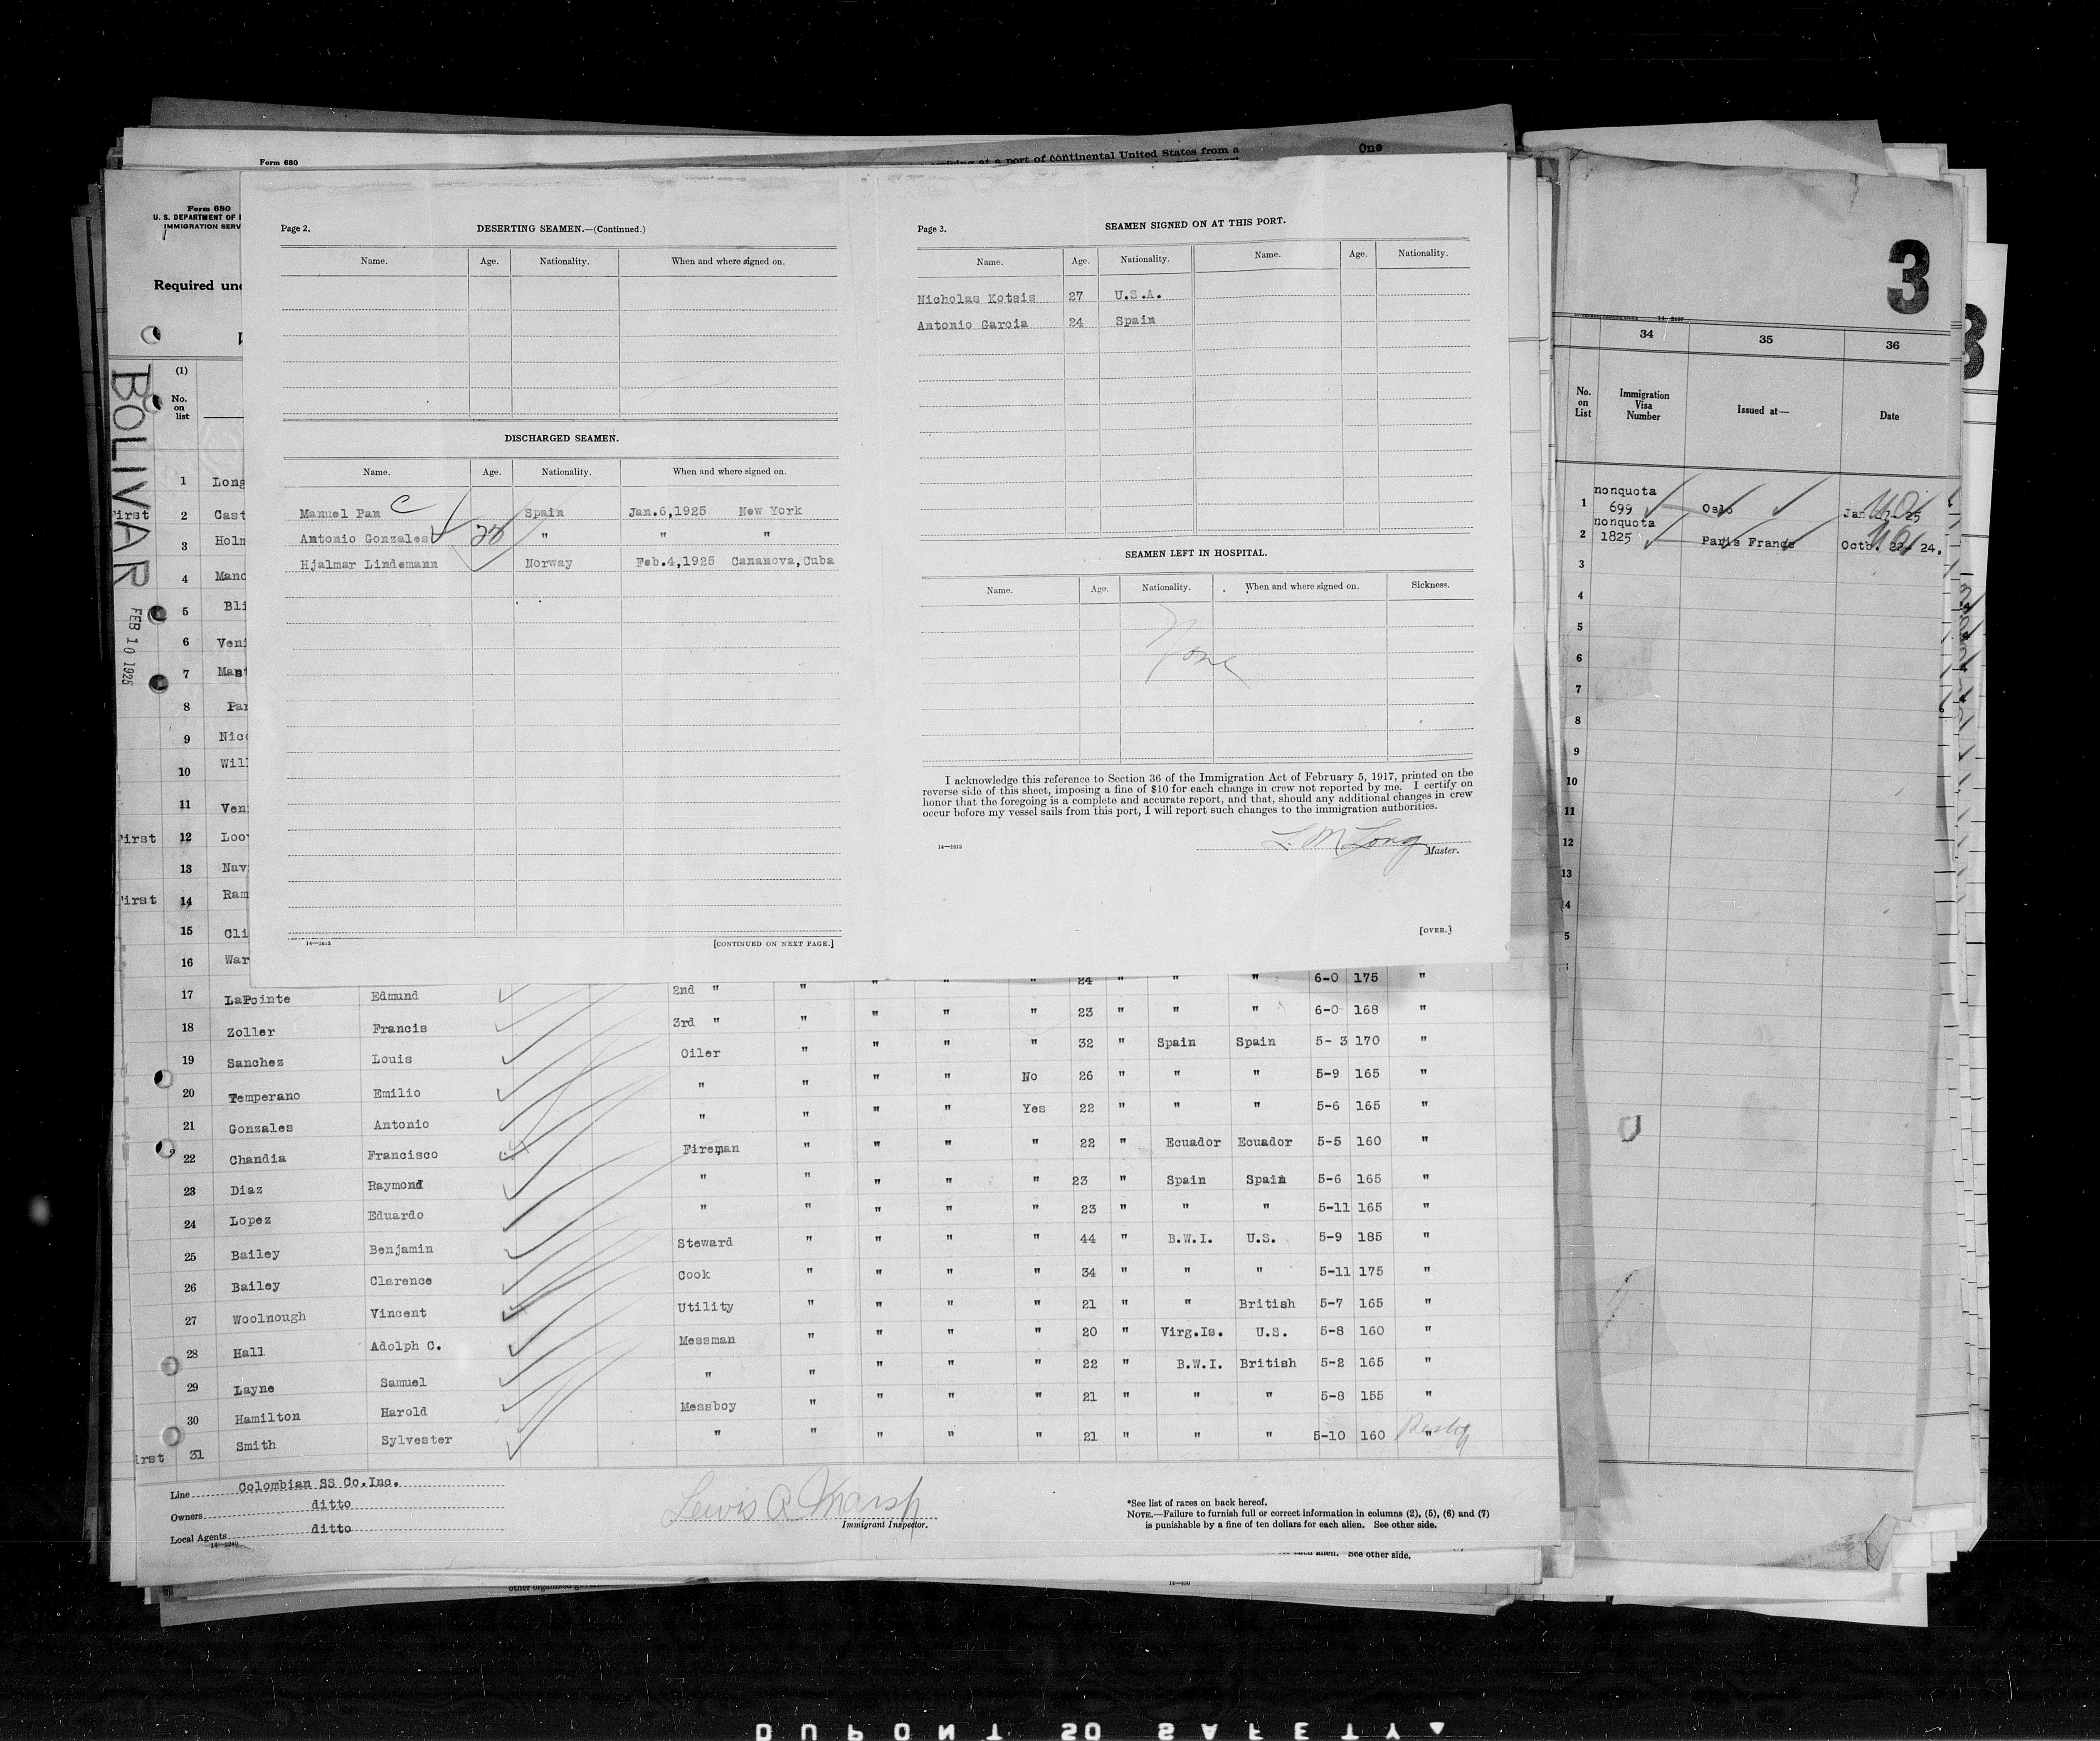 Form 680
arriving at a port of continental United States from a
One
Form 680
U. S. DEPARTMENT OF
IMMIGRATION SERV
Required und
BOLIVAR
FEB 10 1925
(1)
No. on list
Page 2.
DESERTING SEAMEN.—(Continued.)
Name. Age. Nationality. When and where signed on.
DISCHARGED SEAMEN.
Name. Age. Nationality. When and where signed on.
Manuel Pan C Spain Jan.6,1925 New York
Antonio Gonzales " " "
Hjalmar Lindemann Norway Feb.4,1925 Cananova,Cuba
14—1613
[CONTINUED ON NEXT PAGE.]
Page 3.
SEAMEN SIGNED ON AT THIS PORT.
Name. Age. Nationality. Name. Age. Nationality.
Nicholas Kotsis 27 U.S.A.
Antonio Garcia 24 Spain
SEAMEN LEFT IN HOSPITAL.
Name. Age. Nationality. When and where signed on. Sickness.
None
I acknowledge this reference to Section 36 of the Immigration Act of February 5, 1917, printed on the
reverse side of this sheet, imposing a fine of $10 for each change in crew not reported by me. I certify on
honor that the foregoing is a complete and accurate report, and that, should any additional changes in crew
occur before my vessel sails from this port, I will report such changes to the immigration authorities.
L M Long
14—1613
Master.
[OVER.]
1 Long
First 2 Cast
3 Holm
4 Manc
5 Bli
6 Veni
7 Mast
8 Par
9 Nico
10 Will
11 Ven
First 12 Loo
13 Nav
First 14 Ram
15 Cli
16 War
24 " " " 6-0 175 "
17 LaPointe Edmund 2nd " " " " " 
18 Zoller Francis 3rd " " " " " 23 " " " 6-0 168 "
19 Sanchez Louis Oiler " " " " 32 " Spain Spain 5-3 170 "
20 Temperano Emilio " " " " No 26 " " " 5-9 165 "
21 Gonzales Antonio " " " " Yes 22 " " " 5-6 165 "
22 Chandia Francisco Fireman " " " " 22 " Ecuador Ecuador 5-5 160 "
23 Diaz Raymond " " " " " 23 " Spain Spain 5-6 165 "
24 Lopez Eduardo " " " " " 23 " " " 5-11 165 "
25 Bailey Benjamin Steward " " " " 44 " B.W.I. U.S. 5-9 185 "
26 Bailey Clarence Cook " " " " 34 " " " 5-11 175 "
27 Woolnough Vincent Utility " " " " 21 " " British 5-7 165 "
28 Hall Adolph C. Messman " " " " 20 " Virg.Is. U.S. 5-8 160 "
29 Layne Samuel " " " " " 22 " B.W.I. British 5-2 165 "
30 Hamilton Harold Messboy " " " " 21 " " " 5-8 155 "
irst 31 Smith Sylvester " " " " " 21 " " " 5-10 160 "
Line Colombian SS Co.Inc.
Owners ditto
Local Agents ditto
14—1240
Lewis A Marsh
Immigrant Inspector.
*See list of races on back hereof.
NOTE.—Failure to furnish full or correct information in columns (2), (5), (6) and (7)
is punishable by a fine of ten dollars for each alien. See other side.
for each alien. See other side.
3
34 35 36
No. on List Immigration Visa Number Issued at— Date
1 nonquota 699 Oslo Jan 25
2 nonquota 1825 Paris France Octb. 22- 24.
3
4
5
6
7
8
9
10
11
12
13
14
5
DUPONT SO SAFETY